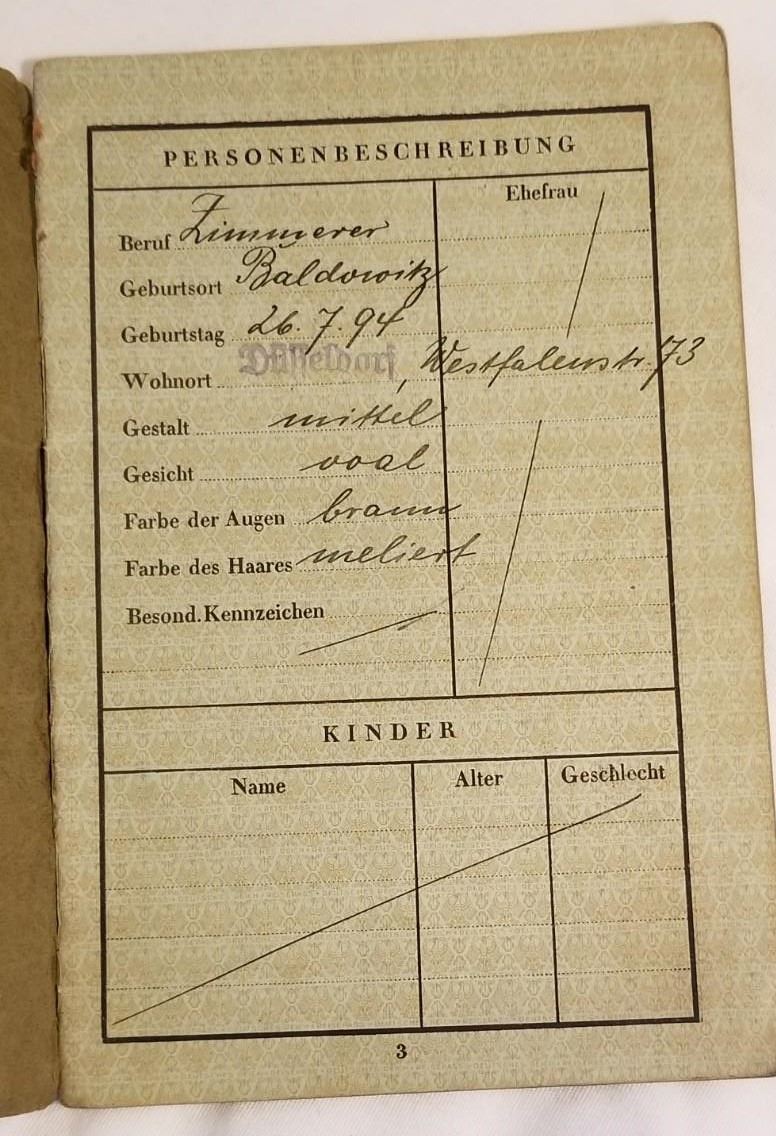 PERSONENBESCHREIBUNG
Ehefrau
Beruf Zimmerer
Geburtsort Baldowitz
Geburtstag 26.7.94
Wohnort Düsseldorf, Westfalenstr. 73
Gestalt mittel
Gesicht oval
Farbe der Augen braun
Farbe des Haares meliert
Besond. Kennzeichen
KINDER
Name Alter Geschlecht
3